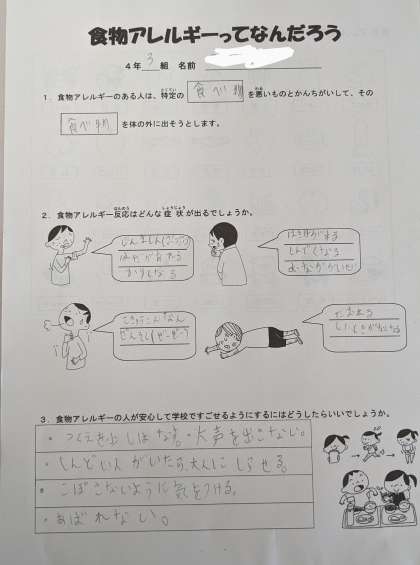 食物アレルギーってなんだろう
4年 3 組 名前
1．食物アレルギーのある人は、特定の 食べ物 を悪いものとかんちがいして、その
食べ物 を体の外に出そうとします。
2．食物アレルギー反応はどんな症状が出るでしょうか。
じんましん
はきけがする
こきゅうこんなん
ぜんそく(ぜーぜー)
たおれる
3．食物アレルギーの人が安心して学校ですごせるようにするにはどうしたらいいでしょうか。
・つくえを出しはなし・大声を出さない。
・しんどい人がいたら、大人にしらせる。
・こぼさないように気をつける。
・あばれない。